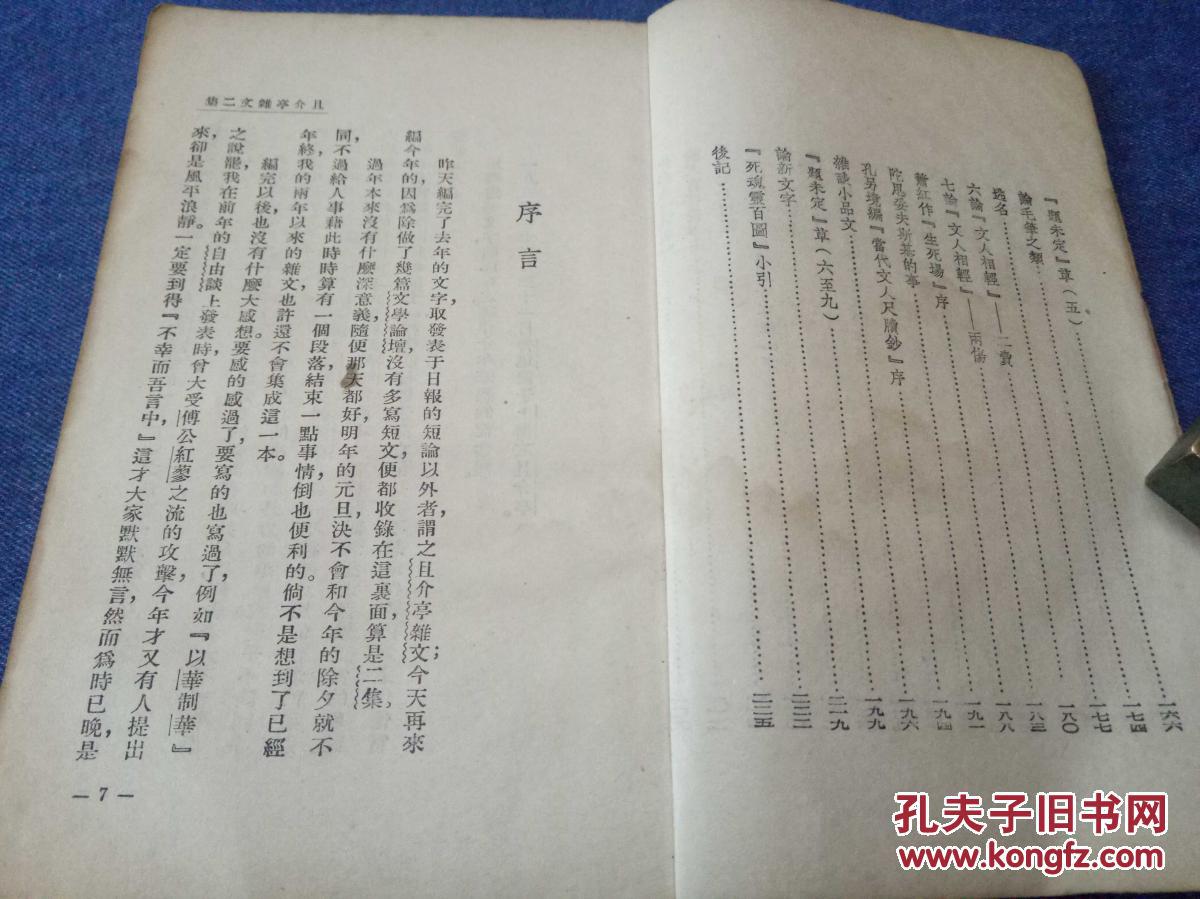 『題未定』草（五）……一六六
論毛筆之類……一七四
逃名……一七七
六論『文人相輕』——二賣……一八〇
七論『文人相輕』——兩傷……一八三
蕭紅作『生死場』序……一八八
陀思妥夫斯基的事……一九一
孔另境編『當代文人尺牘鈔』序……一九四
雜談小品文……一九六
『題未定』草（六至九）……一九九
論新文字……二一九
『死魂靈百圖』小引……二二二
後記……二二五
且介亭雜文二集
序言
昨天編完了去年的文字，取發表于日報的短論以外者，謂之且介亭雜文；今天再來
編今年的，因爲除做了幾篇文學論壇，沒有多寫短文，便都收錄在這裏面，算是二集。
過年本來沒有什麼深意義，隨便那天都好，明年的元旦，決不會和今年的除夕就不
同，不過給人事藉此時時算有一個段落，結束一點事情，倒也便利的。倘不是想到了已經
年終，我的兩年以來的雜文，也許還不會集成這一本。
編完以後，也沒有什麼大感想。要感的感過了，要寫的也寫過了，例如『以華制華』
之說罷，我在前年的自由談上發表時，曾大受傅公紅蓼之流的攻擊，今年才又有人提出
來，卻是風平浪靜。一定要到得『不幸而吾言中，』這才大家默默無言，然而爲時已晚，是
— 7 —
孔夫子旧书网
www.kongfz.com